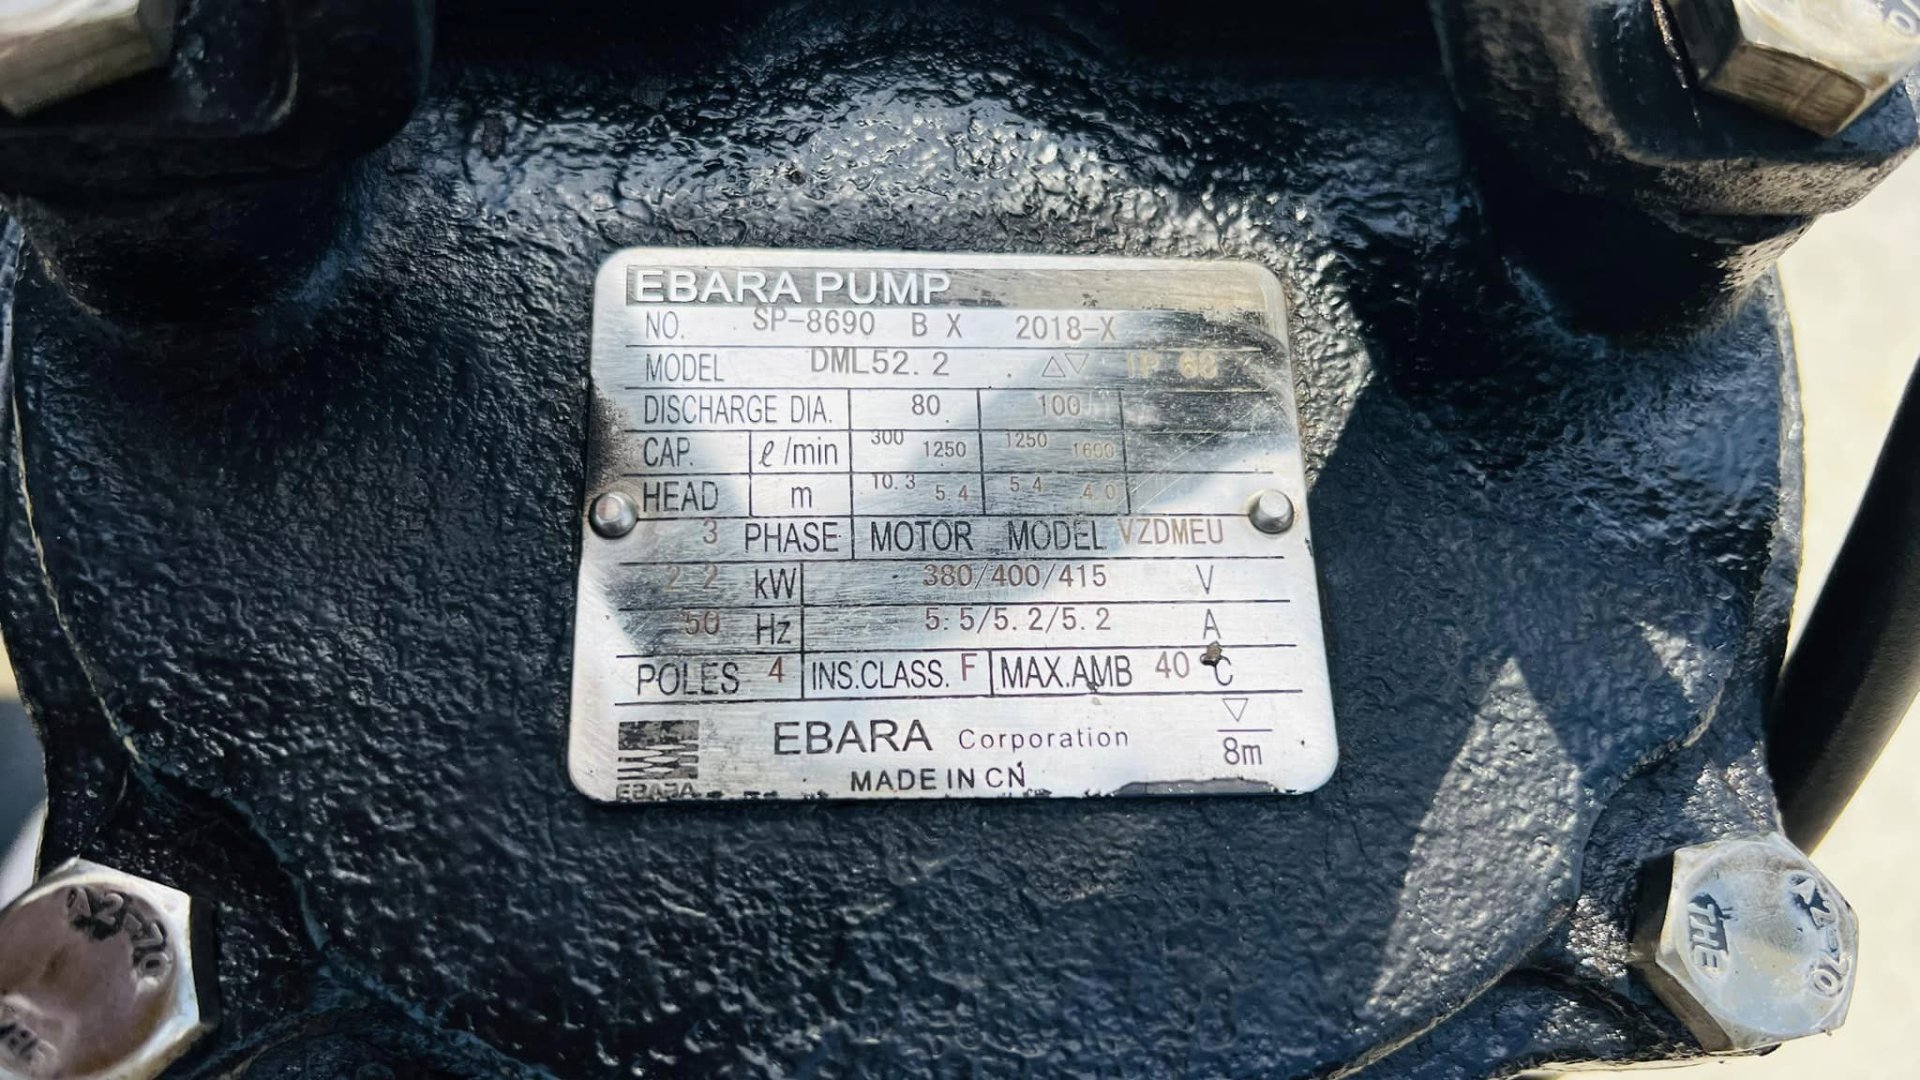 EBARA PUMP
NO. SP-8690 B X 2018-X
MODEL DML52.2 △▽ IP 68
DISCHARGE DIA. 80 100
CAP. ℓ/min 300 1250 1250 1600
HEAD m 10.3 5.4 5.4 4.0
3 PHASE MOTOR MODEL VZDMEU
2.2 kW 380/400/415 V
50 Hz 5.5/5.2/5.2 A
POLES 4 INS.CLASS. F MAX.AMB 40 °C
EBARA Corporation ▽ 8m
EBARA MADE IN CN
A2-70
THE A2-70